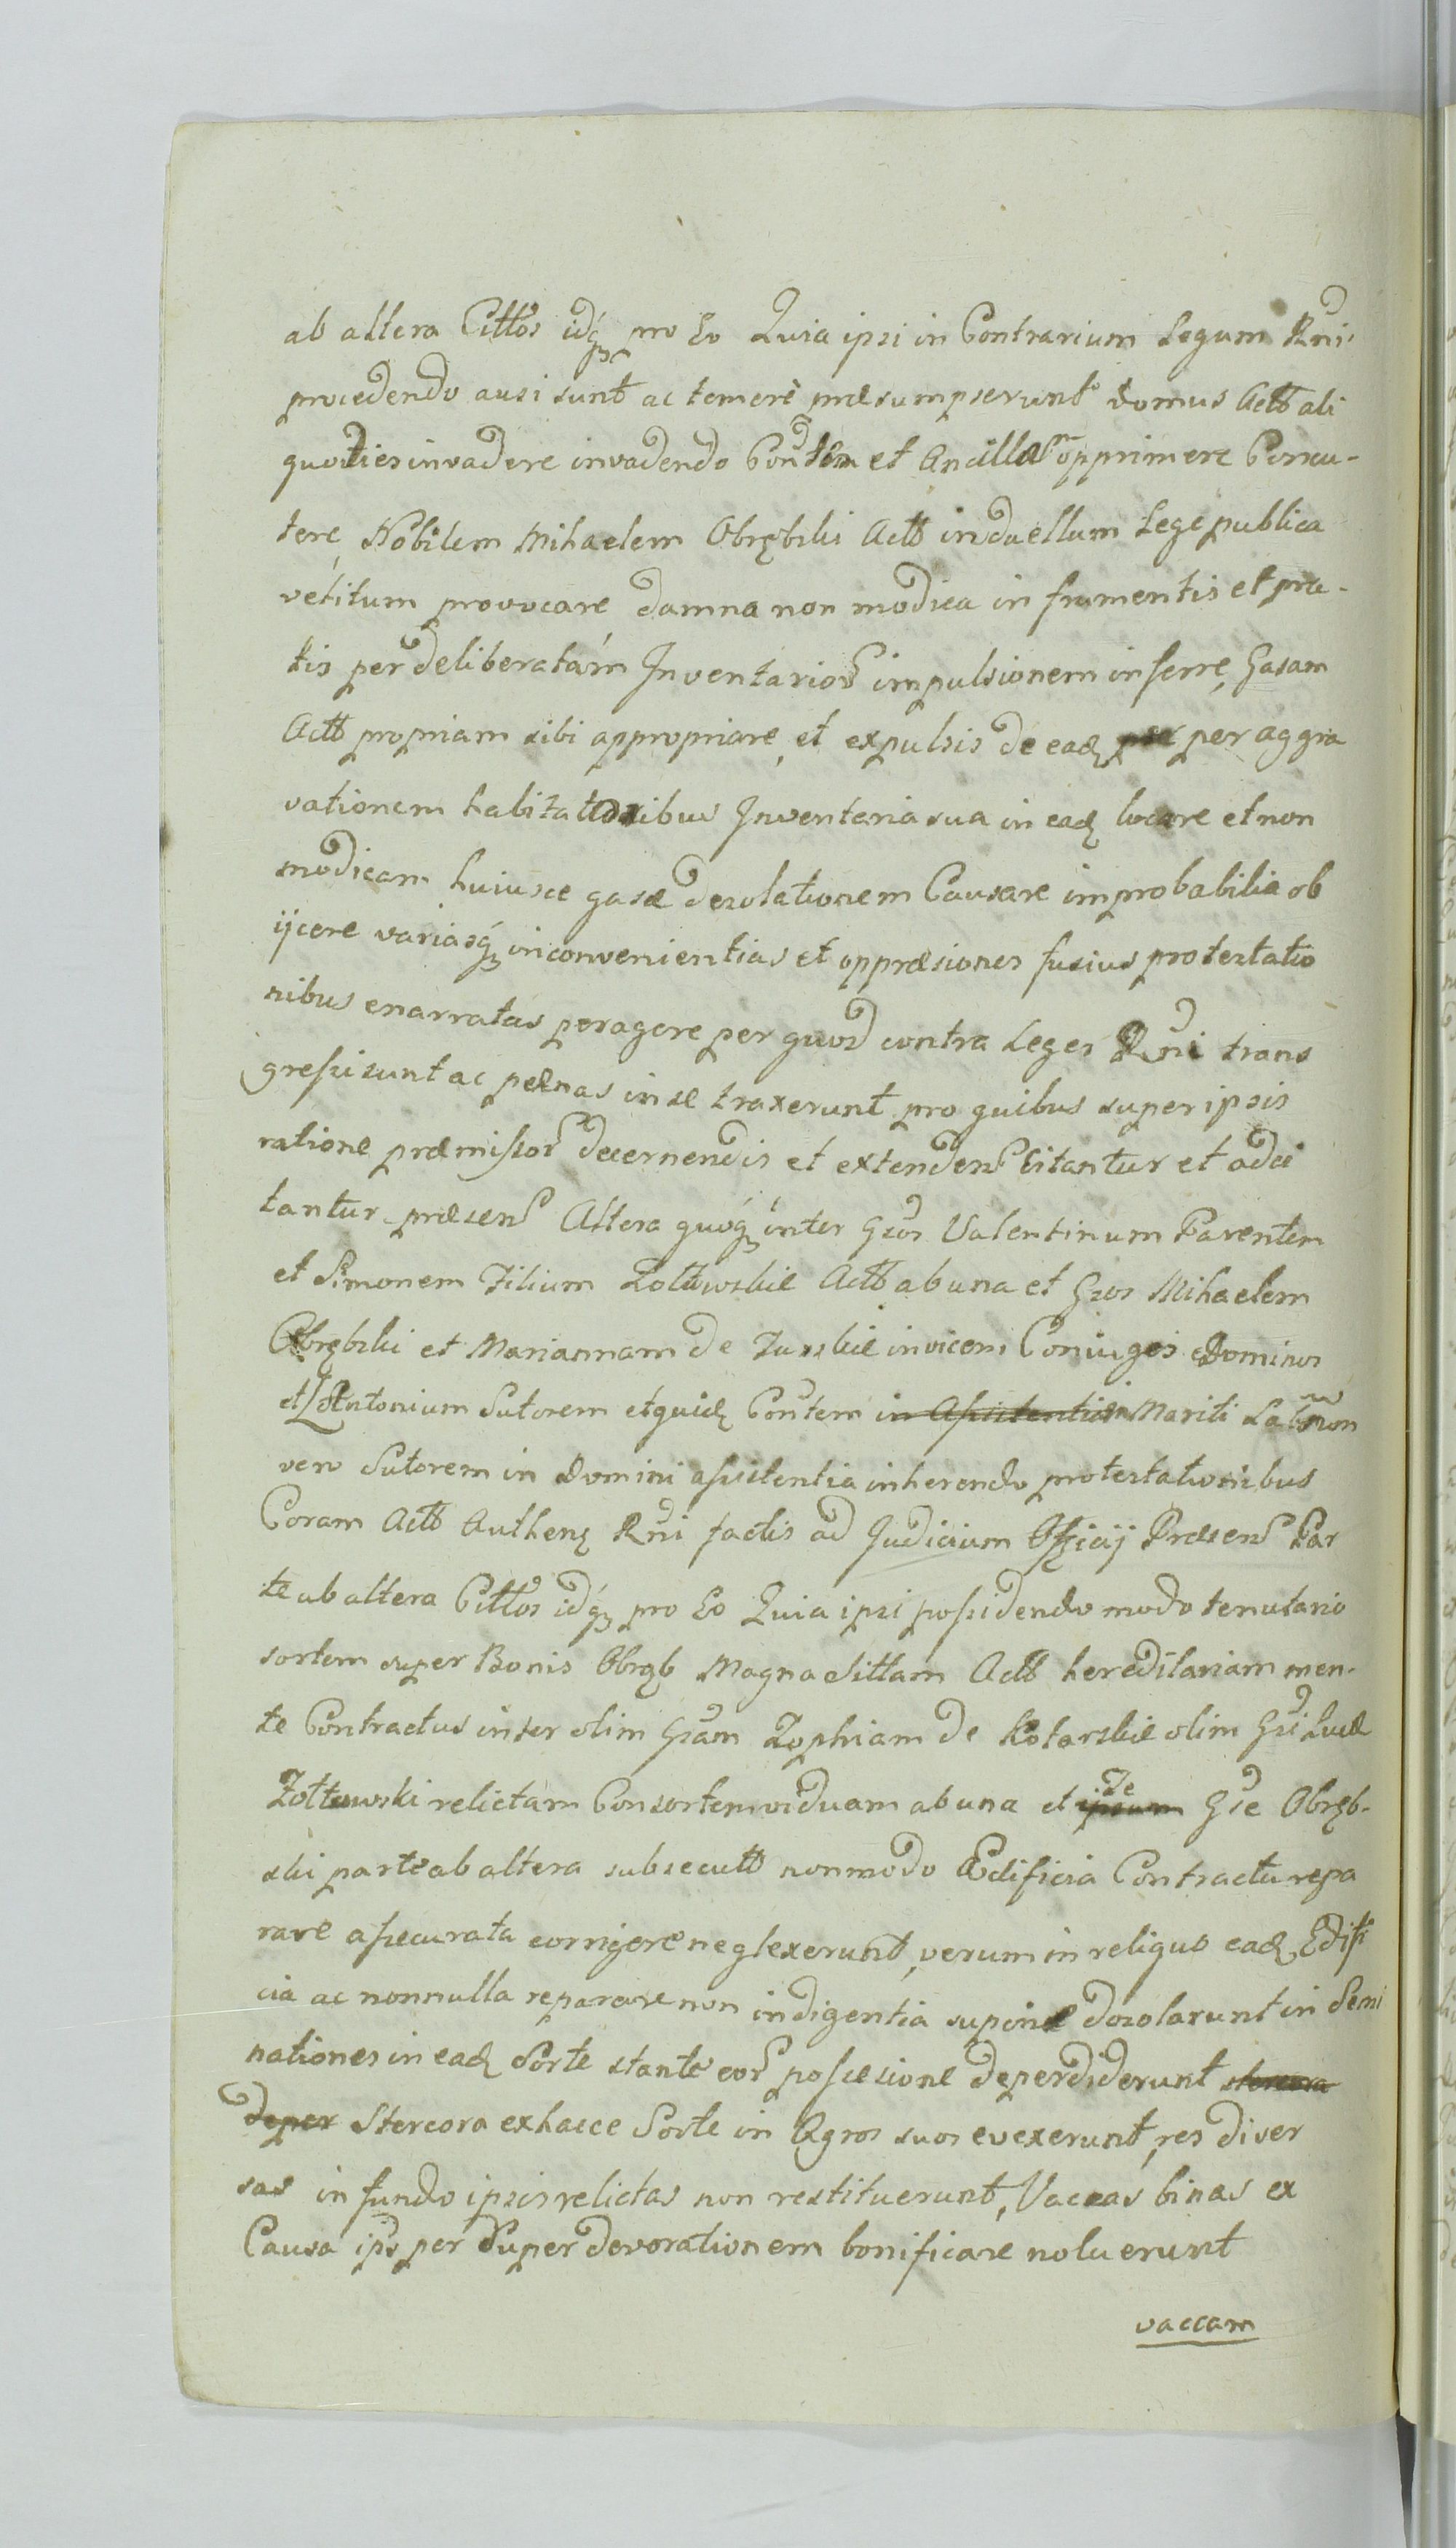 ab altera Cittos idq pro Eo Quia ipsi in Contrarium Legum Rni
procedendo ausi sunt ac temerè præsumpserunt domus Actt ali
quoties invadere invadendo Contem et Ancillæ opprimere Percu-
tere, Nobilem Mihaelem Obrębski Actt in duellum Lege publica
vetitum provocare damna non modica in frumentis et pra-
tis per deliberatam Inventarior impulsionem inferre, Gasam
Actt propriam sibi appropriare, et expulsis de eadq per aggra
vationem habitatoribus Inventaria sua in eadq locare et non
modicam huiusce gasæ desolationem Causare improbabilia ob
ijcere variasq inconvenientias et oppræsiones fusius protestatio
nibus enarratas peragere per quod contra Leges Rni trans
gressi sunt ac pænas in se traxerunt pro quibus super ipsis
ratione præmissor decernendis et extenden Citantur et adci
tantur præsen Altera quoq inter Gsos Valentinum Parentem
et Simonem Filium Zołtowskie Actt ab una et Gsos Mihaelem
Obrębski et Mariannam de Turskie invicem Coniuges Dominos
et Antonium Sutorem et quidq Contem in Assistentia Mariti Labrion
vero Sutorem in Domini assistentia inherendo protestationibus
Coram Actt Authenq Rni factis ad Judicium Officij Præsen Par
te ab altera Cittos idq pro Eo Quia ipsi possidendo modo tenutario
sortem super Bonis Obręb Magna sittam Actt hereditariam men-
te Contractus inter olim Gsam Zophiam de Kotarskie olim Gsi Lucæ
Zołtowski relictam Consortem viduam ab una et ipsum de Gse Obręb-
ski parte ab altera subsecutt non modo Ædificia Contractu repa
rare assecurata corrigere neglexerunt, verum in reliquo eadq Edifi
cia ac nonnulla reparare non indigentia supine desolarunt in Semi
nationes in eadq Sorte stante eor possesione deperdiderunt stercora
deper Stercora ex hacce Sorte in Agros suos evexerunt, res diver
sas in fundo ipsis relictas non restituerunt, Vaccas binas ex
Causa ips per Super devorationem bonificare noluerunt
vaccam